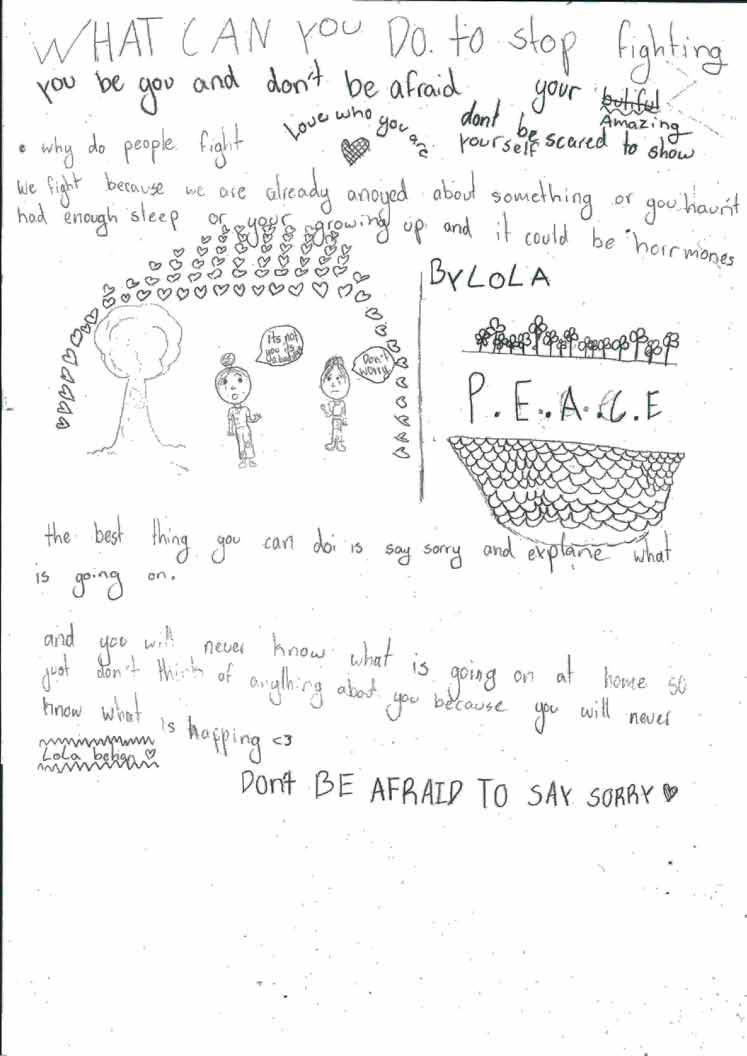 WHAT CAN YOU DO. to stop fighting
you be you and don't be afraid your butiful Amazing
Love who you are
dont be scared to show yourself
• why do people fight
We fight because we are already anoyed about something or you havn't
had enough sleep or your growing up and it could be horrmones
BY LOLA
Its not
you its
Don't
worry
P.E.A.C.E
the best thing you can do is say sorry and explane what
is going on.
and you will never know what is going on at home so
just don't think of anything about you because you will never
know what is happing <3
LoLa
Don't BE AFRAID TO SAY SORRY